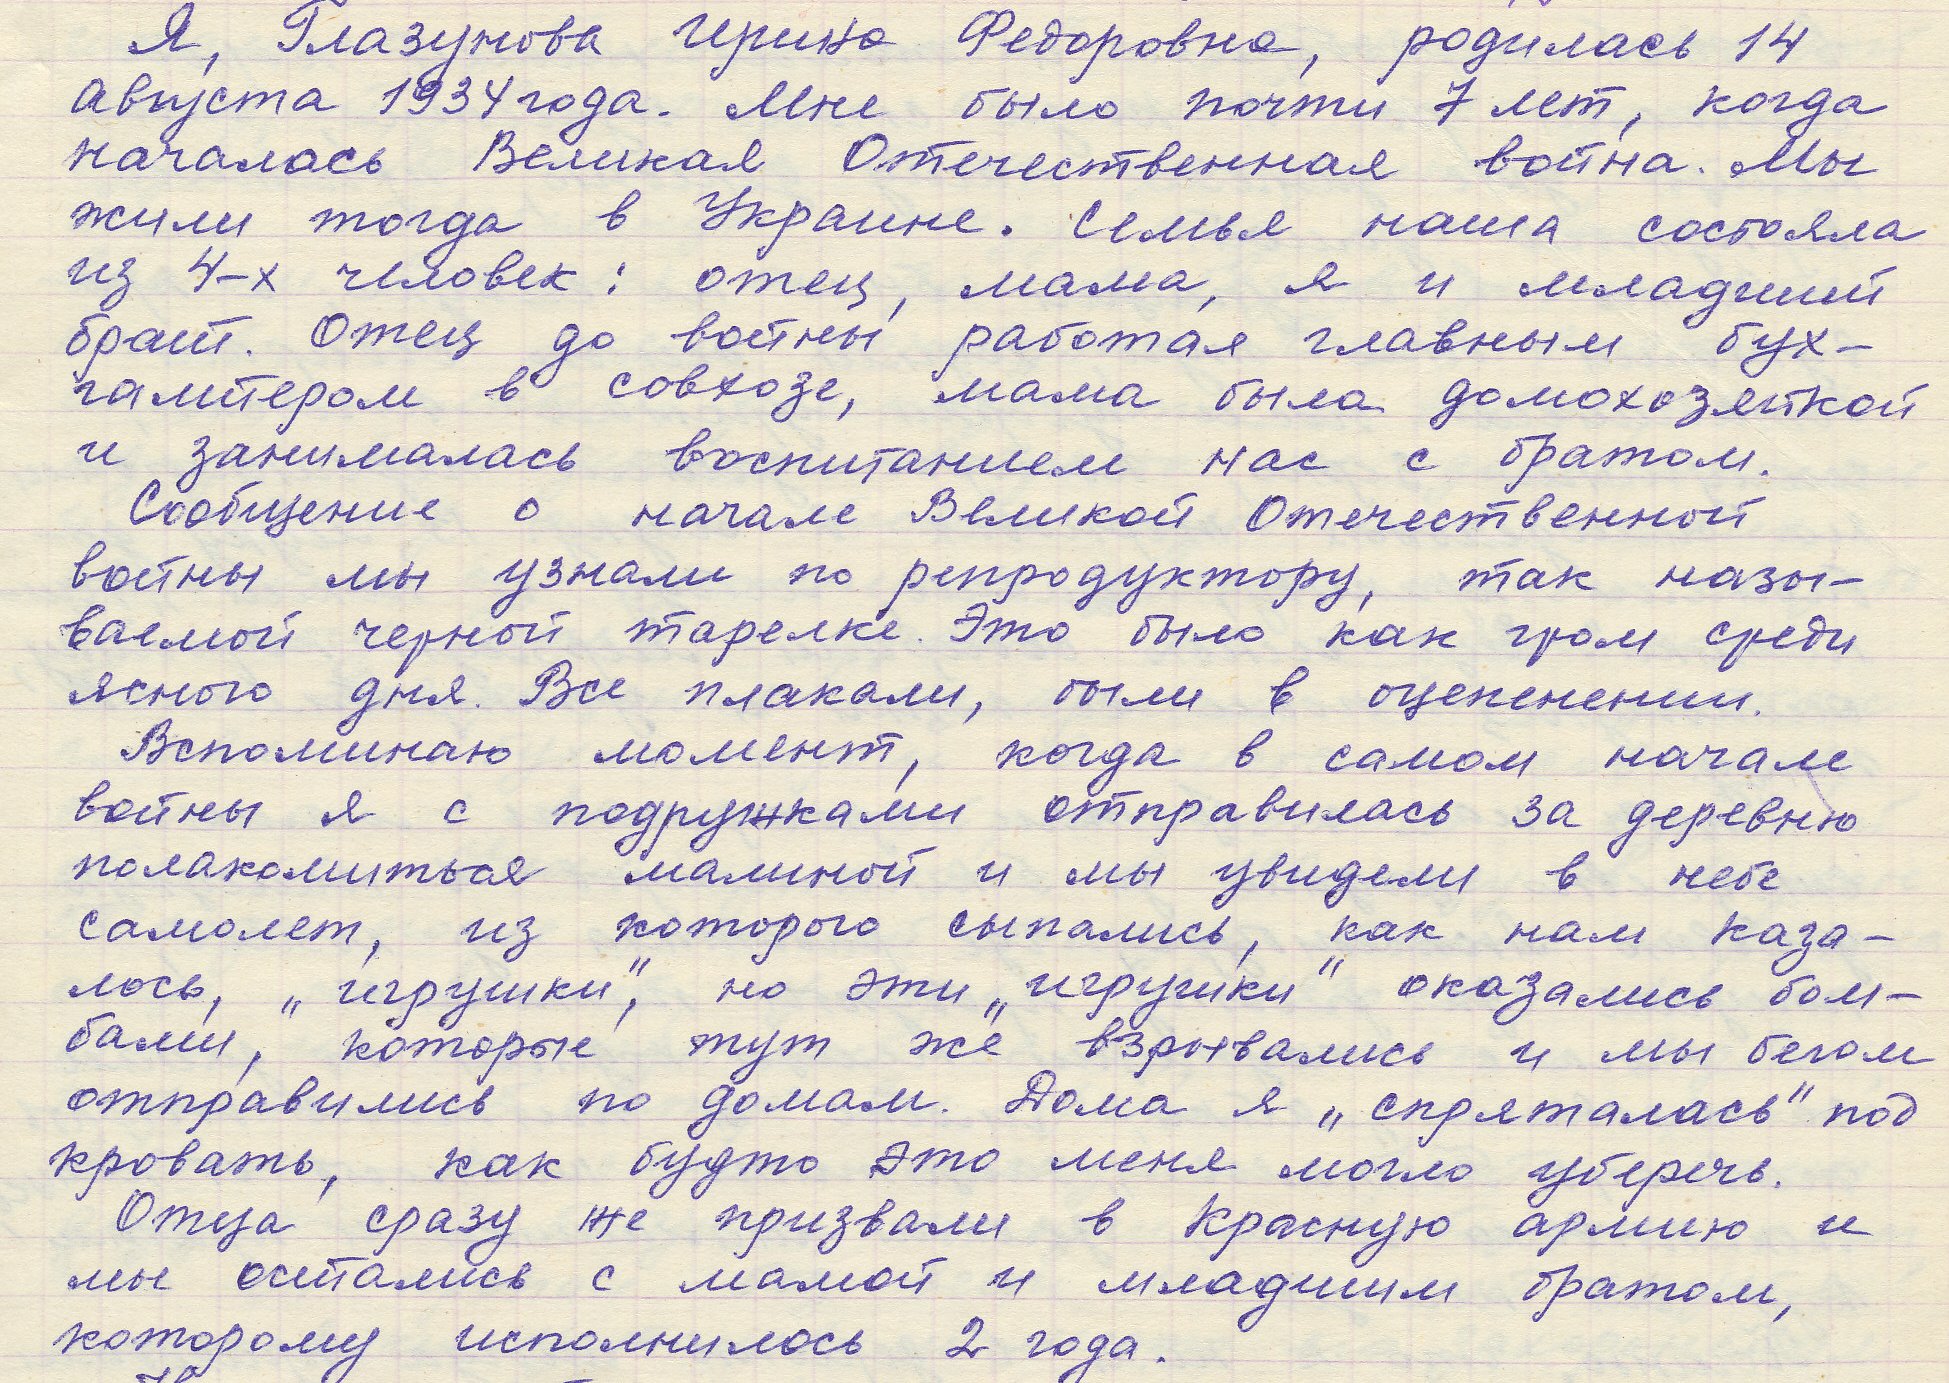 Я, Глазунова Ирина Федоровна, родилась 14
августа 1934 года. Мне было почти 7 лет, когда
началась Великая Отечественная война. Мы
жили тогда в Украине. Семья наша состояла
из 4-х человек: отец, мама, я и младший
брат. Отец до войны работал главным бух-
галтером в совхозе, мама была домохозяйкой
и занималась воспитанием нас с братом.
Сообщение о начале Великой Отечественной
войны мы узнали по репродуктору, так назы-
ваемой черной тарелке. Это было как гром среди
ясного дня. Все плакали, были в оцепенении.
Вспоминаю момент, когда в самом начале
войны я с подружками отправилась за деревню
полакомиться малиной и мы увидели в небе
самолет, из которого сыпались, как нам каза-
лось, „игрушки", но эти „игрушки" оказались бом-
бами, которые тут же взрывались и мы бегом
отправились по домам. Дома я „спряталась" под
кровать, как будто это меня могло уберечь.
Отца сразу же призвали в Красную армию и
мы остались с мамой и младшим братом,
которому исполнилось 2 года.